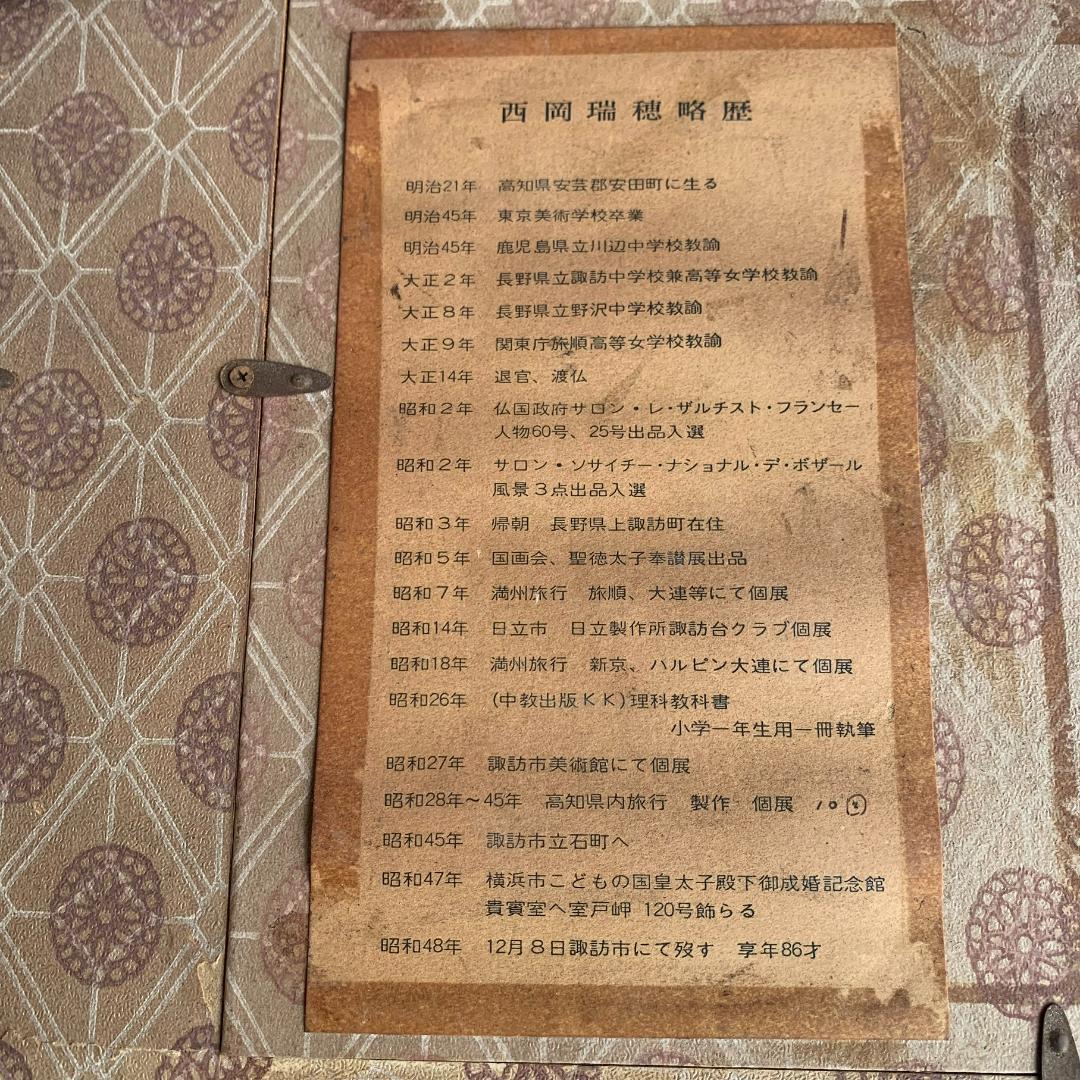 西岡瑞穂略歴
明治21年 高知県安芸郡安田町に生る
明治45年 東京美術学校卒業
明治45年 鹿児島県立川辺中学校教諭
大正2年 長野県立諏訪中学校兼高等女学校教諭
大正8年 長野県立野沢中学校教諭
大正9年 関東庁旅順高等女学校教諭
大正14年 退官、渡仏
昭和2年 仏国政府サロン・レ・ザルチスト・フランセー
人物60号、25号出品入選
昭和2年 サロン・ソサイチー・ナショナル・デ・ボザール
風景3点出品入選
昭和3年 帰朝 長野県上諏訪町在住
昭和5年 国画会、聖徳太子奉讃展出品
昭和7年 満州旅行 旅順、大連等にて個展
昭和14年 日立市 日立製作所諏訪台クラブ個展
昭和18年 満州旅行 新京、ハルピン大連にて個展
昭和26年 (中教出版KK)理科教科書
小学一年生用一冊執筆
昭和27年 諏訪市美術館にて個展
昭和28年～45年 高知県内旅行 製作 個展 10
昭和45年 諏訪市立石町へ
昭和47年 横浜市こどもの国皇太子殿下御成婚記念館
貴賓室へ室戸岬 120号飾らる
昭和48年 12月8日諏訪市にて歿す 享年86才